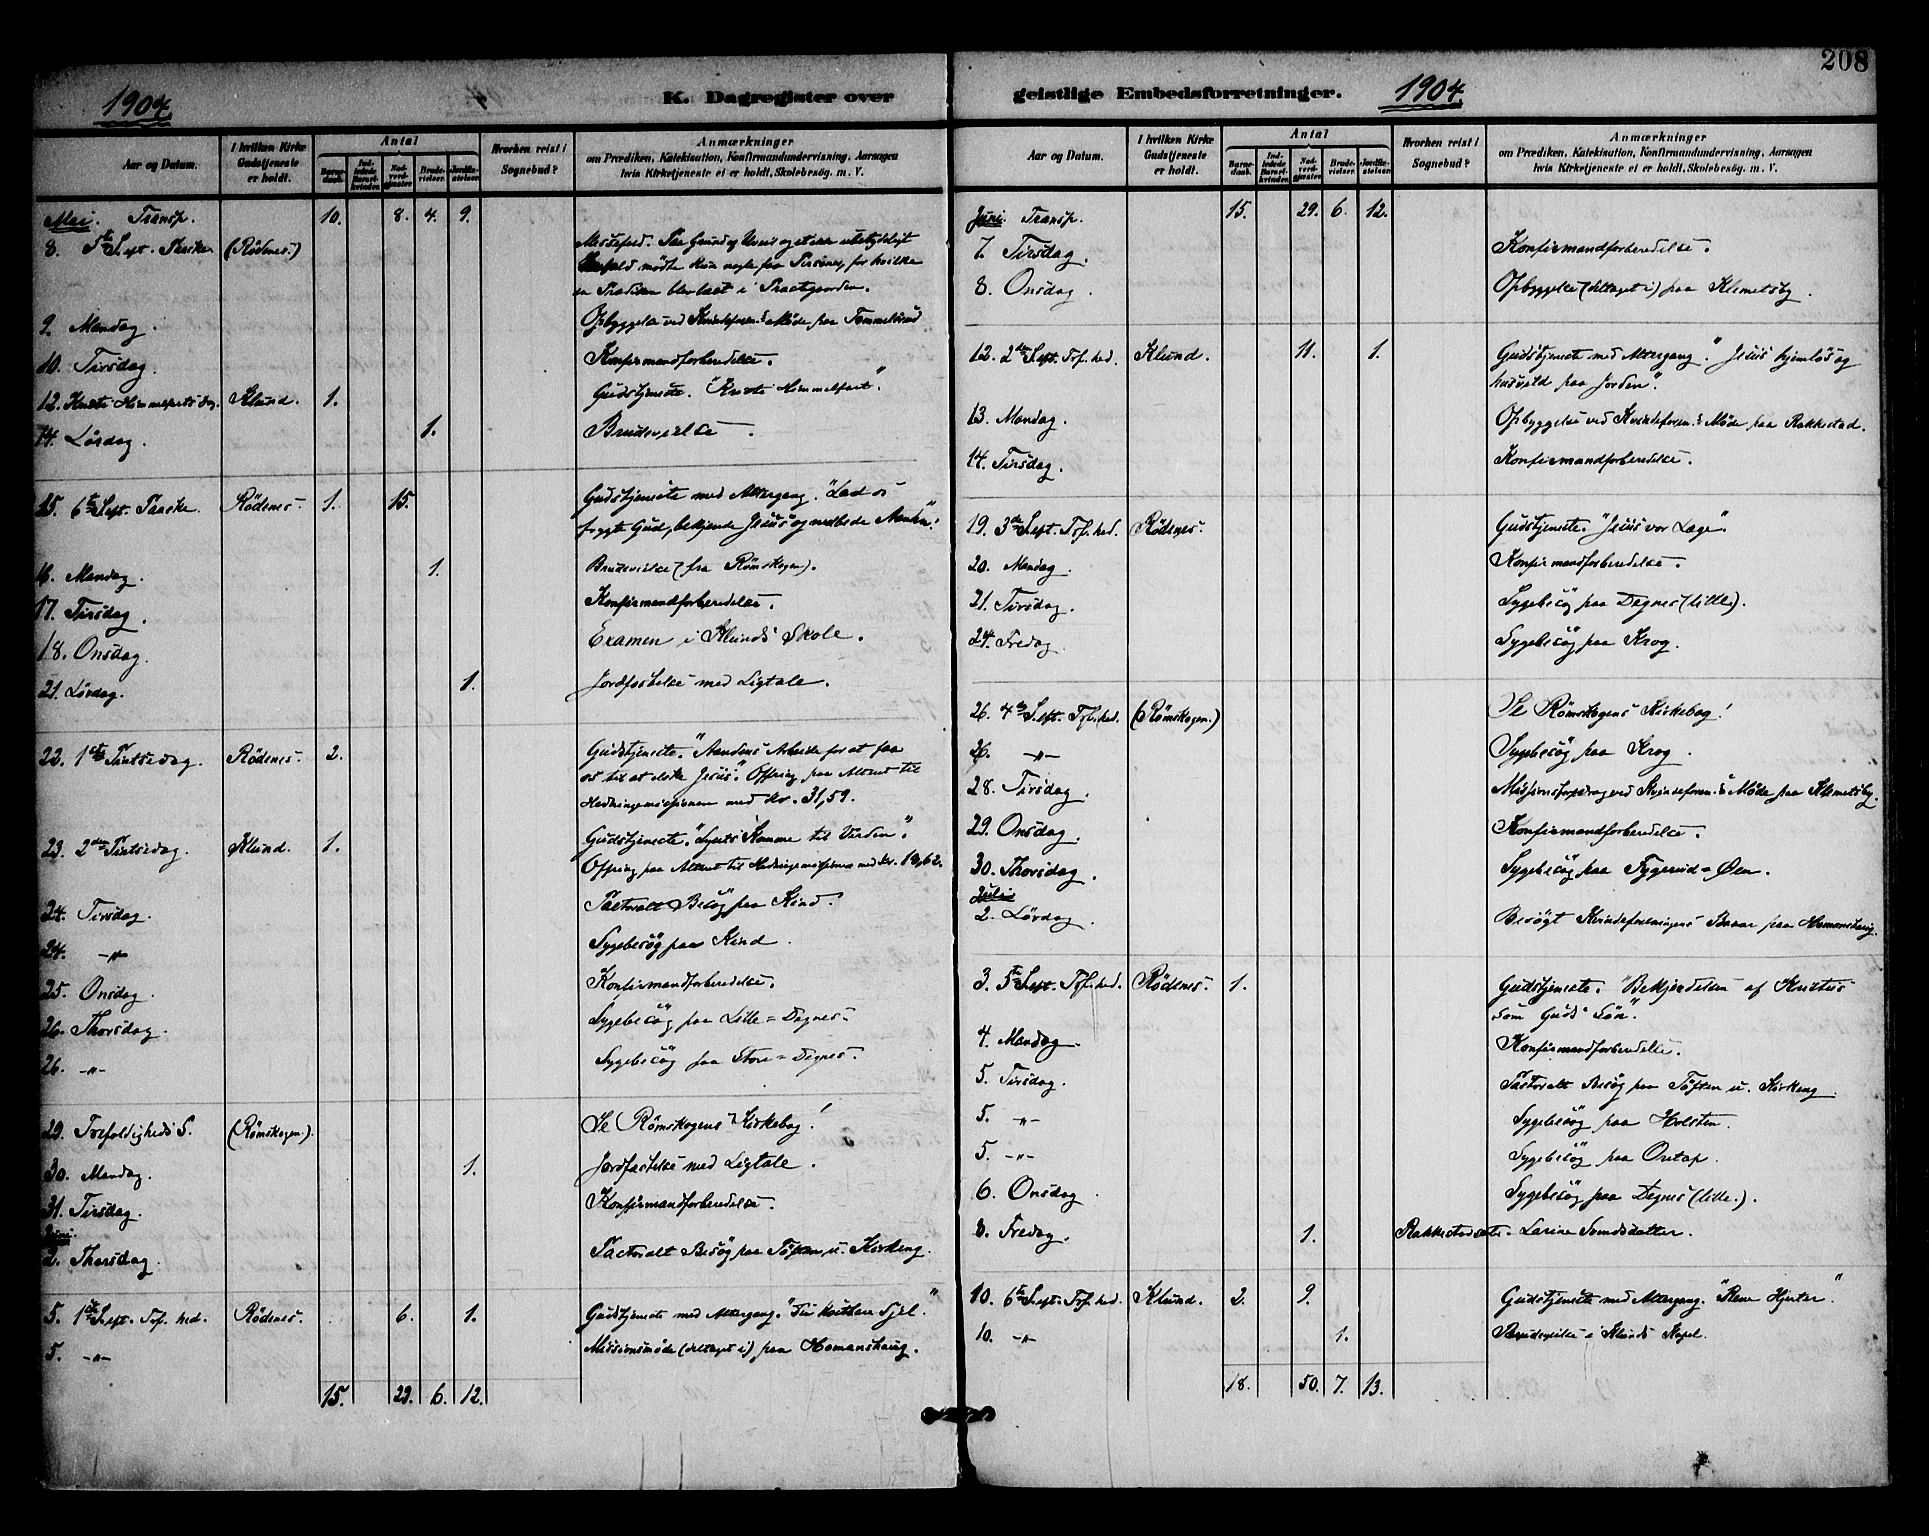 208
1904.
K. Dagregister over
Aar og Datum.
I hvilken Kirke Gudstjeneste er holdt.
Antal
Barnedaab.
Indledede Barselkvinder.
Nadverdgjæster
Brudevielser.
Jordfæstelser.
Hvorhen reist i Sognebud?
Anmærkninger
om Prædiken, Katekisation, Konfirmandundervisning, Aarsagen
hvis Kirketjeneste ei er holdt, Skolebesøg, m. V.
Mai. Transp. 10. 8. 4. 9.
8. 5te S. eft. Paaske (Rödenes.) Messefald. Paa Grund af
mødte kun nogle faa Personer, for hvilke
en Prædiken blev læst i Præstgaarden.
9. Mandag. Opbyggelse ved Kvindeforen.s Møde paa Tommelsrud
10. Tirsdag. Konfirmandforberedelse.
12. Kristi Himmelfartsdag. Klund. 1. Gudstjeneste. "Kristi Himmelfart".
14. Lördag. 1. Brudevielse.
15. 6te S. eft. Paaske. Rödenes. 1. 15. Gudstjeneste med Altergang. "Lad os
frygte Gud, bekjende Jesus og modtage Aanden".
16. Mandag. 1. Brudevielse (fra Römskogen).
17. Tirsdag. Konfirmandforberedelse.
18. Onsdag. Examen i Klunds Skole.
21. Lördag. 1. Jordfæstelse med Ligtale.
22. 1ste Pintsedag. Rödenes. 2. Gudstjeneste. "Aandens Arbeide for at faa
os til at elske Jesus". Offring paa Alteret til
Hedningemissionen med Kr. 31,59.
23. 2den Pintsedag. Klund. 1. Gudstjeneste. "Lysets Komme til Verden".
Offring paa Alteret til Hedningemissionen med Kr. 19,62.
24. Tirsdag. Pastoralt Besög paa Kind.
24. -"- Sygebesög paa Kind.
25. Onsdag. Konfirmandforberedelse.
26. Thorsdag. Sygebesög paa Lille=Degnes.
26. -"- Sygebesög paa Store=Degnes.
29. Trefoldigheds S. (Römskogen). Se Römskogens Kirkebog!
30. Mandag. 1. Jordfæstelse med Ligtale.
31. Tirsdag. Konfirmandforberedelse.
Juni.
2. Thorsdag. Pastoralt Besög paa Töften u. Kirkeng.
5. 1ste S. eft. Tref.hed. Rödenes. 6. 1. Gudstjeneste med Altergang. "Din kostbare Sjel."
5. -"- Missionsmøde (deltaget i) paa Homanshaug.
15. 29. 6. 12.
geistlige Embedsforretninger.
1904.
Aar og Datum.
I hvilken Kirke Gudstjeneste er holdt.
Antal
Barnedaab.
Indledede Barselkvinder.
Nadverdgjæster
Brudevielser.
Jordfæstelser.
Hvorhen reist i Sognebud?
Anmærkninger
om Prædiken, Katekisation, Konfirmandundervisning, Aarsagen
hvis Kirketjeneste ei er holdt, Skolebesøg, m. V.
Juni. Transp. 15. 29. 6. 12.
7. Tirsdag. Konfirmandforberedelse.
8. Onsdag. Opbyggelse (deltaget i) paa Klemetsby.
12. 2den S. eft. Tref.hed. Klund. 11. 1. Gudstjeneste med Altergang. "Jesus hjemlös og
husvild paa Jorden".
13. Mandag. Opbyggelse ved Kvindeforen.s Møde paa Rakkestad.
14. Tirsdag. Konfirmandforberedelse.
19. 3die S. eft. Tref.hed. Rödenes. Gudstjeneste. "Jesus vor Læge".
20. Mandag. Konfirmandforberedelse.
21. Tirsdag. Sygebesög paa Degnes (lille).
24. Fredag. Sygebesög paa Krog.
26. 4de S. eft. Tref.hed. (Römskogen.) Se Römskogens Kirkebog!
26. -"- Sygebesög paa Krog.
28. Tirsdag. Missionsforedrag ved Kvindeforen.s Møde paa Klemetsby.
29. Onsdag. Konfirmandforberedelse.
30. Thorsdag. Sygebesög paa Tygerud=Øen.
Juli
2. Lördag. Besögt Kvindeforeningens Basar paa Homanshaug.
3. 5te S. eft. Tref.hed. Rödenes. 1. Gudstjeneste. "Bekjendelsen af Kristus
som Guds Sön".
4. Mandag. Konfirmandforberedelse.
5. Tirsdag. Pastoralt Besög paa Töften u. Kirkeng.
5. -"- Sygebesög paa Holsten.
5. -"- Sygebesög paa
6. Onsdag. Sygebesög paa Degnes (lille.).
8. Fredag. 1. Rakkestadsæter. Larine
10. 6te S. eft. Tref.hed. Klund. 2. 9. Gudstjeneste med Altergang. "Rene Hjerter".
10. -"- 1. Brudevielse i Klunds Kapel.
18. 50. 7. 13.